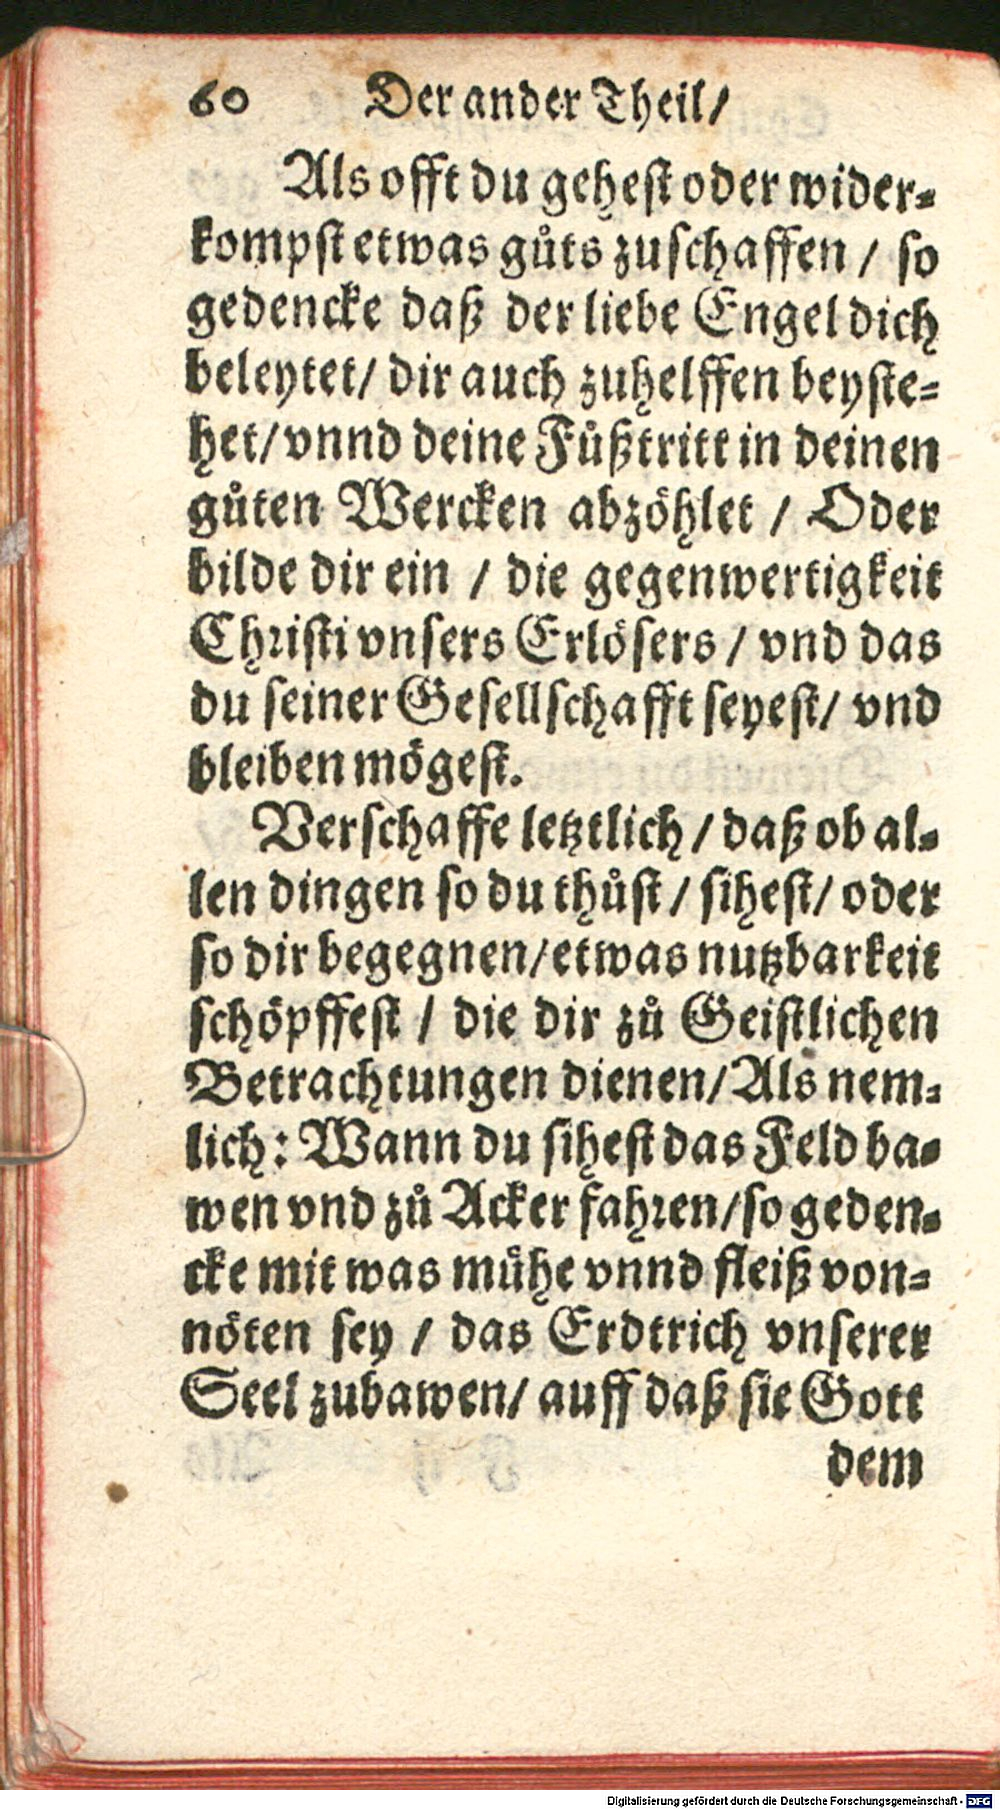 60 Der ander Theil/
Als offt du gehest oder wider⸗
kompst etwas gůts zuschaffen / so
gedencke daß der liebe Engel dich
beleytet/ dir auch zuhelffen beyste⸗
het/ vnnd deine Fůßtritt in deinen
gůten Wercken abzöhlet / Oder
bilde dir ein / die gegenwertigkeit
Christi vnsers Erlösers / vnd das
du seiner Gesellschafft seyest/ vnd
bleiben mögest.
Verschaffe letztlich / daß ob al⸗
len dingen so du thůst / sihest/ oder
so dir begegnen/ etwas nutzbarkeit
schöpffest / die dir zů Geistlichen
Betrachtungen dienen/ Als nem⸗
lich: Wann du sihest das Feld ba⸗
wen vnd zů Acker fahren/ so geden⸗
cke mit was mühe vnnd fleiß von⸗
nöten sey / das Erdtrich vnserer
Seel zubawen/ auff daß sie Gott
dem
Digitalisierung gefördert durch die Deutsche Forschungsgemeinschaft - DFG